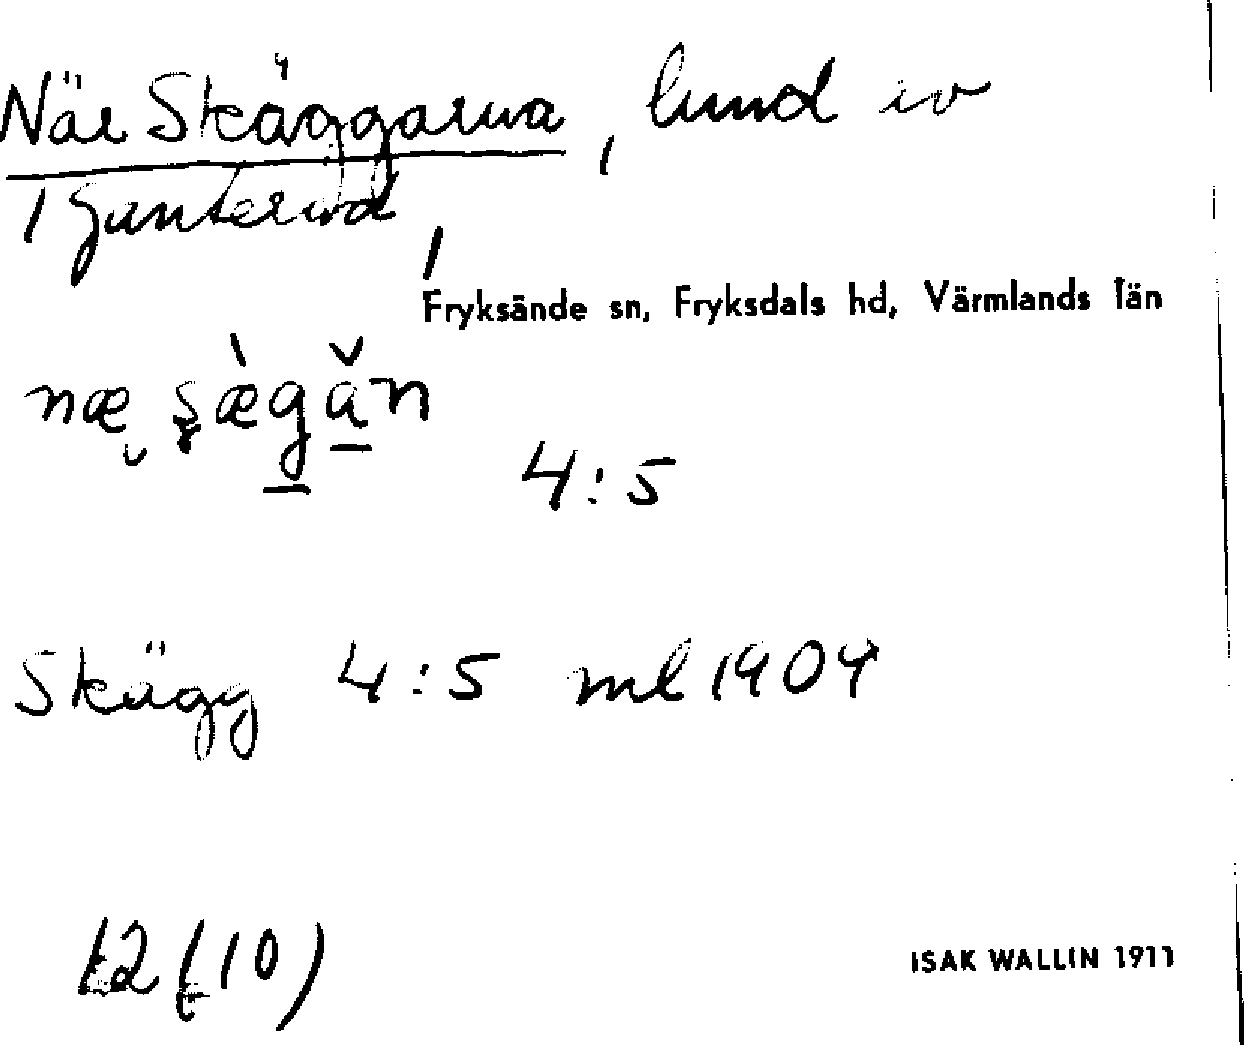 När Skäggarna, lund iv
Fryksände sn, Fryksdals hd, Värmlands län
næ
4:5
Skägg 4:5 ml 1904
12 (10)
ISAK WALLIN 1911